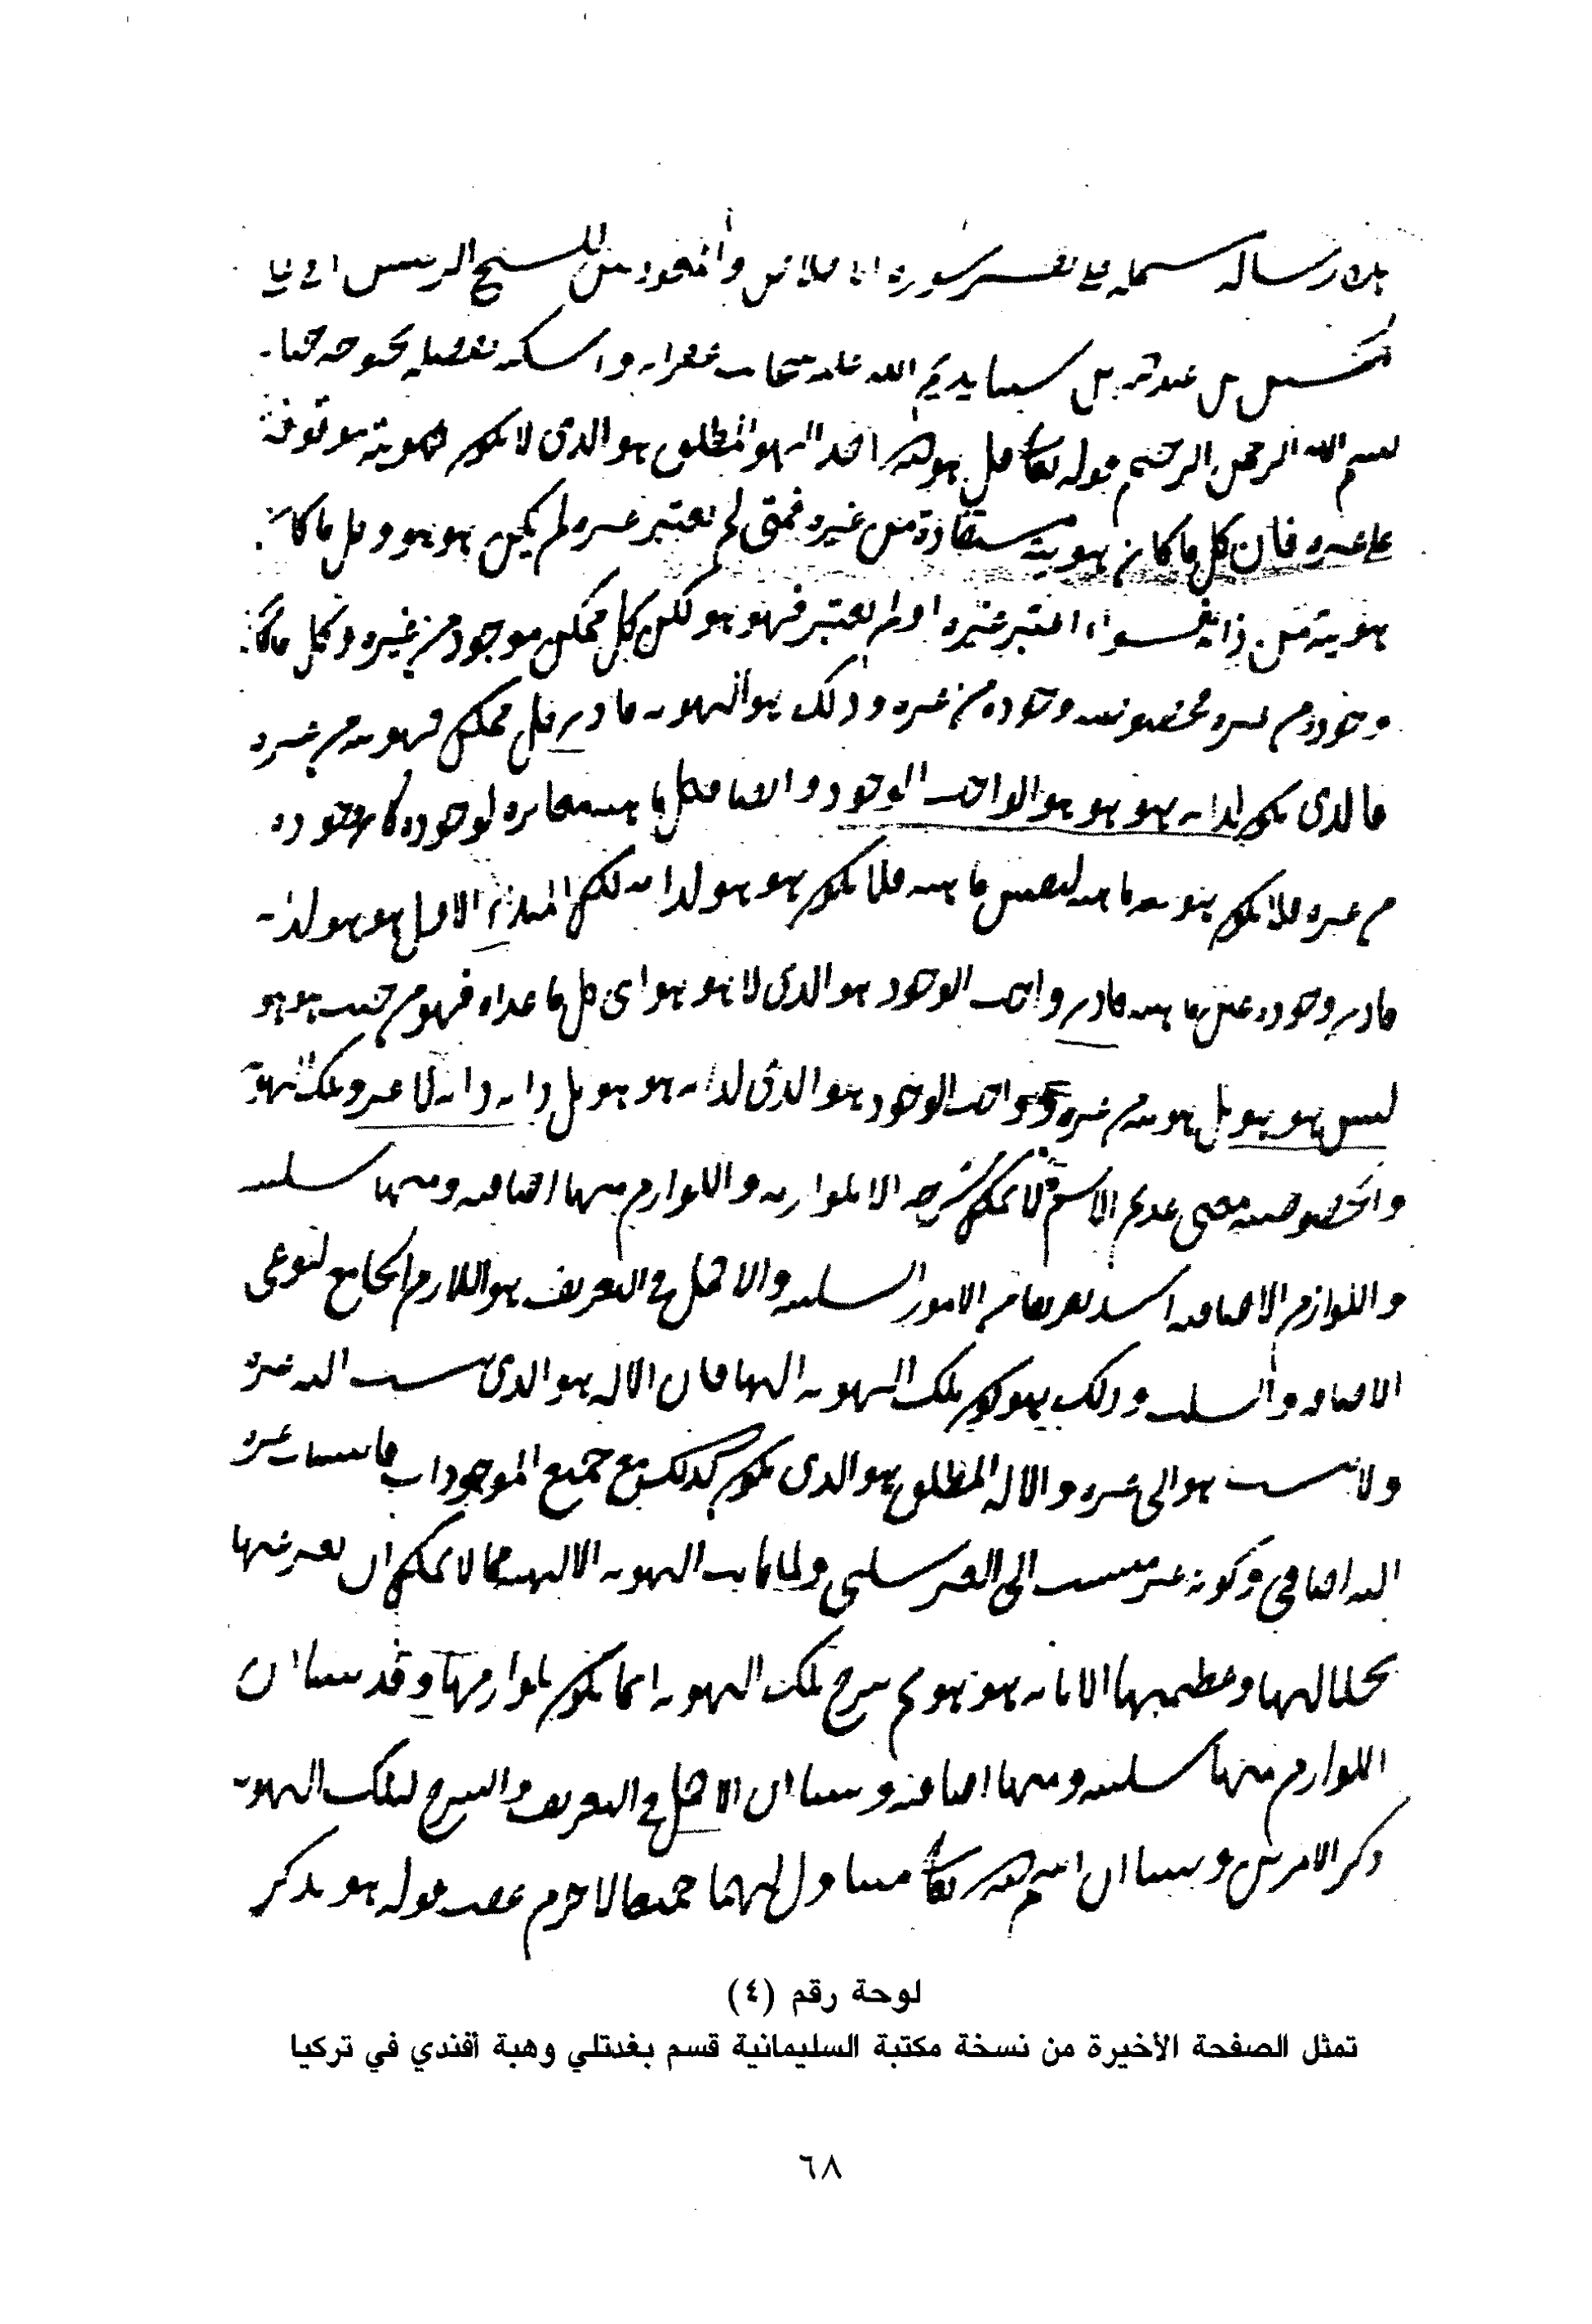 هذه رسالة مشتملة على تفسير سورة الاخلاص والمعوذتين للشيخ الرئيس ابي علي
الحسين بن عبد الله بن سينا يديم الله عليه سحاب غفرانه واسكنه بفضله بحبوحة جنانه
بسم الله الرحمن الرحيم قوله تعالى قل هو الله احد الهو المطلق هو الذى لا يكون هويته موقوفة
على غيره فان كل ما كان هويته مستفادة من غيره فمتى لم يعتبر غيره لم يكن هو هو وكل ما كان
هويته من ذاته فسواء اعتبر غيره او لم يعتبر فهو هو لكن كل ممكن موجود من غيره وكل ما كان
وجوده من غيره فخصوصية وجوده من غيره وذلك هو الهوية فاذن كل ممكن فهويته من غيره
فالذى يكون لذاته هو هو هو الواجب الوجود وايضا فكل ما هيته مغايرة لوجوده كان وجوده
من غيره فلا يكون هويته ماهيته لنفس ماهيته فلا يكون هو هو لذاته لكن المبدأ الاول هو هو لذاته
فاذن وجوده عين ماهيته فاذن واجب الوجود هو الذى لا هو هو اى كل ما عداه فهو من حيث هو هو
ليس هو هو بل هويته من غيره وواجب الوجود هو الذى لذاته هو هو بل ذاته ذاته لا غير وتلك الهوية
والخصوصية معنى عديم الاسم لا يمكن شرحه الا بلوازمه واللوازم منها اضافية ومنها سلبية
واللوازم الاضافية اشد تعريفا من الامور السلبية والاكمل في التعريف هو اللازم الجامع لنوعى
الاضافة والسلب وذلك هو كون تلك الهوية الها فان الاله هو الذى ينسب اليه غيره
ولا ينسب هو الى غيره والاله المطلق هو الذى يكون كذلك مع جميع الموجودات فانتساب غيره
اليه اضافي وكونه غير منتسب الى الغير سلبى ولما كانت الهوية الالهية مما لا يمكن ان يعبر عنها
لجلالتها وعظمتها الا بانه هو هو ثم شرح تلك الهوية انما يكون بلوازمها وقد بينا ان
اللوازم منها سلبية ومنها اضافية وبينا ان الاكمل في التعريف والشرح لتلك الهوية
ذكر الامرين وبينا ان اسم الله تعالى متناول لهما جميعا لا جرم عقب قوله هو بذكر
لوحة رقم (٤)
تمثل الصفحة الأخيرة من نسخة مكتبة السليمانية قسم بغدتلي وهبة أفندي في تركيا
٦٨